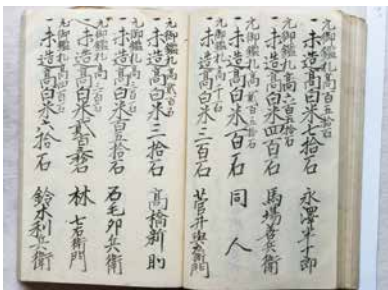 元御鑑札高百五拾石
一未造高白米七拾石 永澤半十郎
元御鑑札高六百五拾石
一未造高白米四百石 馬場善兵衛
元御鑑札高貳百三拾石
一未造高白米百石 同人
元御鑑札高千石
一未造高白米三百石 菅井與惣右衛門
元御鑑札高貳百石
一未造高白米三拾石 高橋新助
元御鑑札高四百石
一未造高白米百五拾石 石毛卯兵衛
元御鑑札高三百石
一未造高白米貳百五拾石 林七右衛門
元御鑑札高四百石
一未造高白米八拾石 鈴木利兵衛